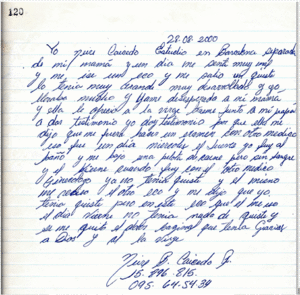 120
28-08-2000
Yo Nuce Caicedo Estudio en Barcelona separada
de mi mamá y un dia me senti muy mal
y me ise un eco y me salio un quiste
lo tenia muy Grande muy desarrollado y yo
lloraba mucho y llame desesperada a mi mama
y ella le ofrecio a la virge junto a mi papa
a dos testimonio yo doy testimonio por que ella me
dijo que me fuera hacer un examen con otro medigo
un dia miercoles el jueves yo fuy al
baño y me bajo una pelota de carne pero sin sangre
y el viernes cuando fuy con el otro medico
Ginecologo ya no tenia quiste y el mismo
me el otro eco y me dijo que yo
tenia quiste pero en este eco que el me iso
el dia Viernes no tenia nada de quiste y
se me quito el dolor bagina que tenia Gracias
a Dios y a la virge
Nuce P. Caicedo G.
15.896.815.
095-64-5439